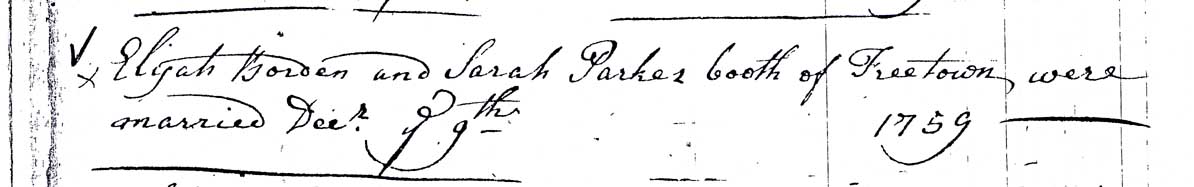 Elijah Borden and Sarah Parker booth of Freetown, were
married Decr. ye 9th 1759